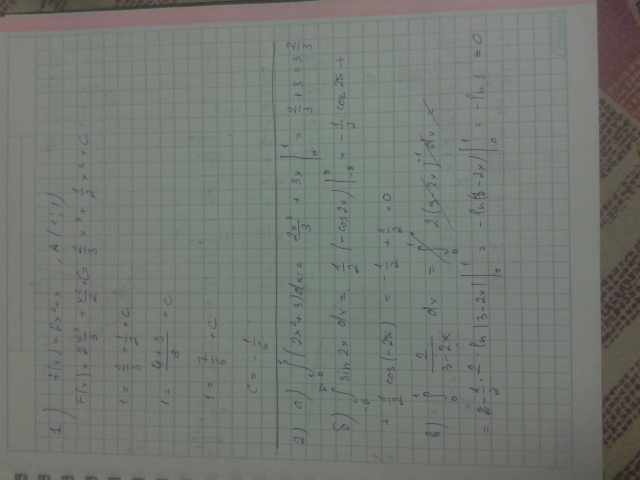 1) f(x) = 2x² + x, A(1;1)
F(x) = 2 x³/3 + x²/2 + C = 2/3 x³ + 1/2 x² + C
1 = 2/3 + 1/2 + C
1 = (4 + 3)/6 + C
1 = 7/6 + C
C = - 1/6
2) а) ∫ (2x² + 3) dx = 2x³/3 + 3x |₀¹ = 2/3 + 3 = 3 2/3
б) ∫ sin 2x dx = 1/2 (-cos 2x) | = - 1/2 cos 2π +
+ 1/2 cos(-2π) = - 1/2 + 1/2 = 0
в) ∫₀¹ 2/(3-2x) dx = 2(3-2x)⁻¹ dx =
= - 1/2 · 2 · ln |3-2x| |₀¹ = - ln(3-2x) |₀¹ = - ln 1 = 0